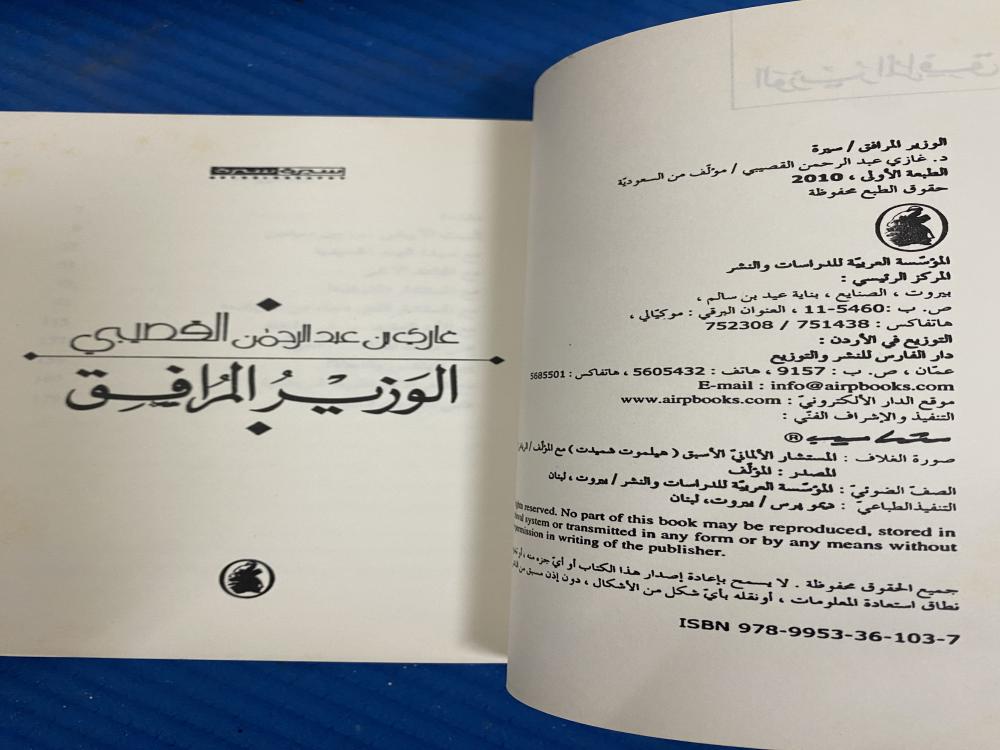 الوزير المرافق / سيرة
د. غازي عبد الرحمن القصيبي / مؤلّف من السعوديّة
الطبعة الأولى ، 2010
حقوق الطبع محفوظة
المؤسّسة العربيّة للدراسات والنشر
المركز الرئيسي :
بيروت ، الصنايع ، بناية عيد بن سالم ،
ص. ب : 5460-11 ، العنوان البرقي : موكيّالي ،
هاتفاكس : 751438 / 752308
التوزيع في الأردن :
دار الفارس للنشر والتوزيع
عمّان ، ص. ب : 9157 ، هاتف : 5605432 ، هاتفاكس : 5685501
E-mail : info@airpbooks.com
موقع الدار الألكترونيّ : www.airpbooks.com
التنفيذ والإشراف الفنّي :
®
صورة الغلاف : المستشار الألمانيّ الأسبق ( هيلموت شميدت ) مع المؤلّف /
المصدر : المؤلّف
الصفّ الضوئيّ : المؤسّسة العربيّة للدراسات والنشر / بيروت ، لبنان
التنفيذ الطباعيّ : ديمو برس / بيروت، لبنان
reserved. No part of this book may be reproduced, stored in
system or transmitted in any form or by any means without
permission in writing of the publisher.
جميع الحقوق محفوظة . لا يسمح بإعادة إصدار هذا الكتاب أو أيّ جزء منه ،
نطاق استعادة المعلومات ، أو نقله بأيّ شكل من الأشكال ، دون إذن مسبق من
ISBN 978-9953-36-103-7
غازي بن عبد الرحمن القصيبي
الوزير المرافق